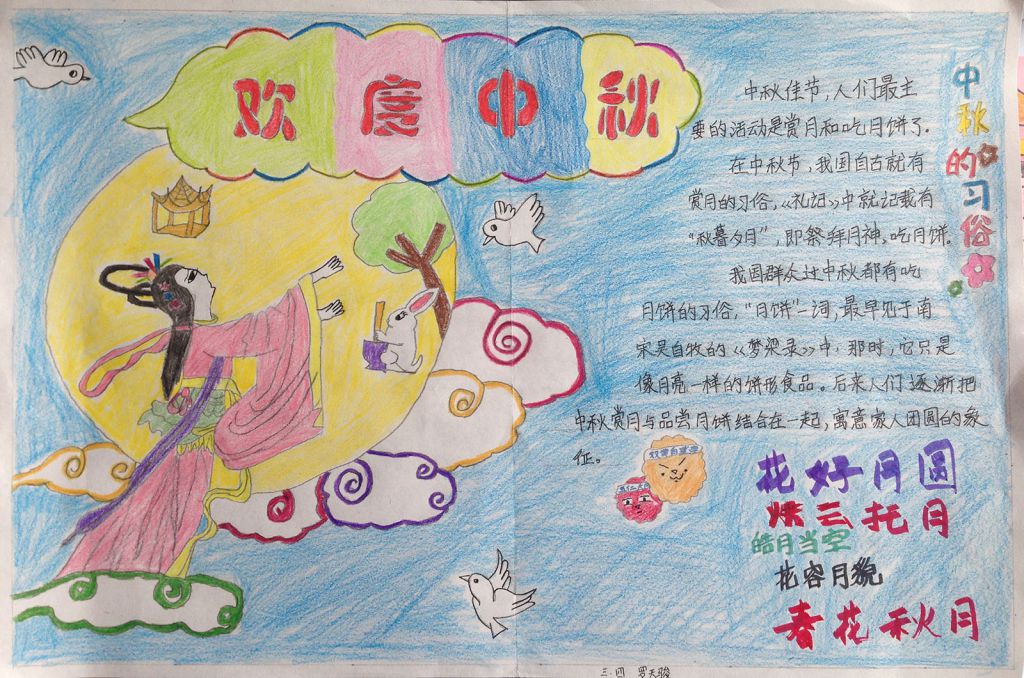 欢度中秋
中秋的习俗
中秋佳节，人们最主
要的活动是赏月和吃月饼了.
在中秋节，我国自古就有
赏月的习俗，《礼记》中就记载有
“秋暮夕月”，即祭拜月神。吃月饼.
我国群众过中秋都有吃
月饼的习俗，“月饼”一词，最早见于南
宋吴自牧的《梦梁录》中，那时，它只是
像月亮一样的饼形食品。后来人们逐渐把
中秋赏月与品尝月饼结合在一起，寓意家人团圆的象
征。
花好月圆
烘云托月
皓月当空
花容月貌
春花秋月
三.四 罗天骏